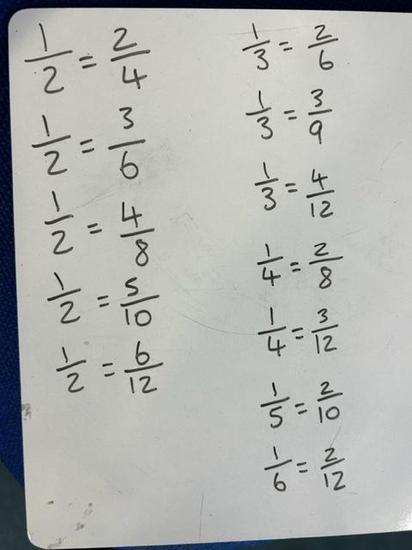 1/2 = 2/4
1/2 = 3/6
1/2 = 4/8
1/2 = 5/10
1/2 = 6/12
1/3 = 2/6
1/3 = 3/9
1/3 = 4/12
1/4 = 2/8
1/4 = 3/12
1/5 = 2/10
1/6 = 2/12